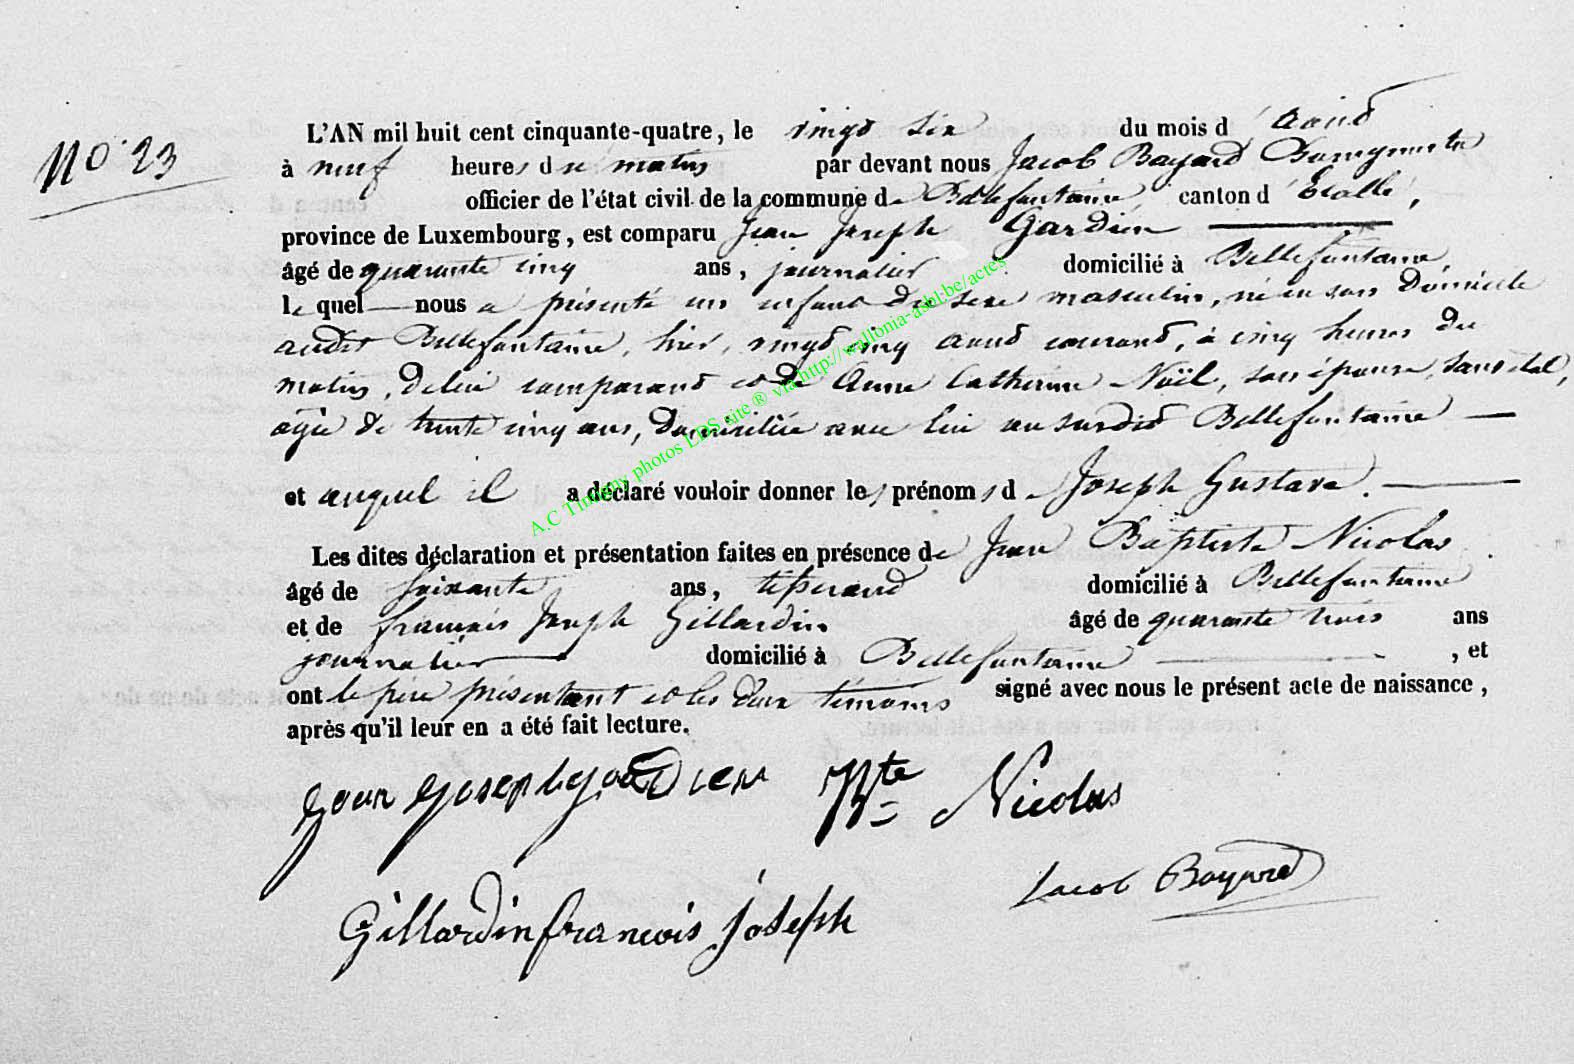 No. 23
L'AN mil huit cent cinquante-quatre, le vingt six du mois d'aout
à neuf heures du matin par devant nous Jacob Bayard Bourgmestre
officier de l'état civil de la commune de Bellefontaine, canton d'Etalle,
province de Luxembourg, est comparu Jean Joseph Gardien
âgé de quarante cinq ans, journalier domicilié à Bellefontaine,
lequel nous a présenté un enfant du sexe masculin, né en son Domicile
audit Bellefontaine, hier, vingt cinq aout courant, à cinq heures du
matin, de lui comparant et de Anne Catherine Noël, son épouse, sans état,
agée de trente cinq ans, Domiciliée avec lui au susdit Bellefontaine
et auquel il a déclaré vouloir donner les prénoms de Joseph Gustave.
Les dites déclaration et présentation faites en présence de Jean Baptiste Nicolas
âgé de soixante ans, tisserand domicilié à Bellefontaine
et de francois Joseph Gillardin âgé de quarante trois ans
journalier domicilié à Bellefontaine, et
ont le père présentant et les deux témoins signé avec nous le présent acte de naissance,
après qu'il leur en a été fait lecture.
Bte Nicolas
Jacob Bayard
Gillardin francois joseph
A.C Tintigny photos LDS site ® via http://wallonia-asbl.be/actes